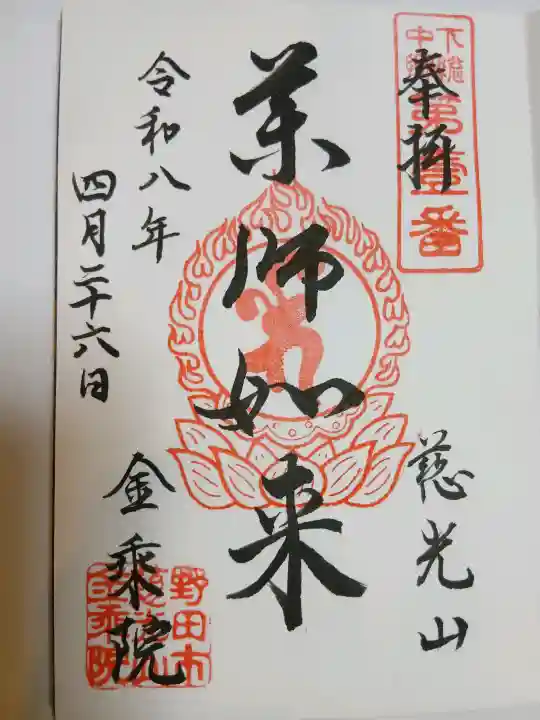 奉拝
下総
中
第壹番
慈光山
薬師如来
令和八年
四月二十六日
金乗院
野田市